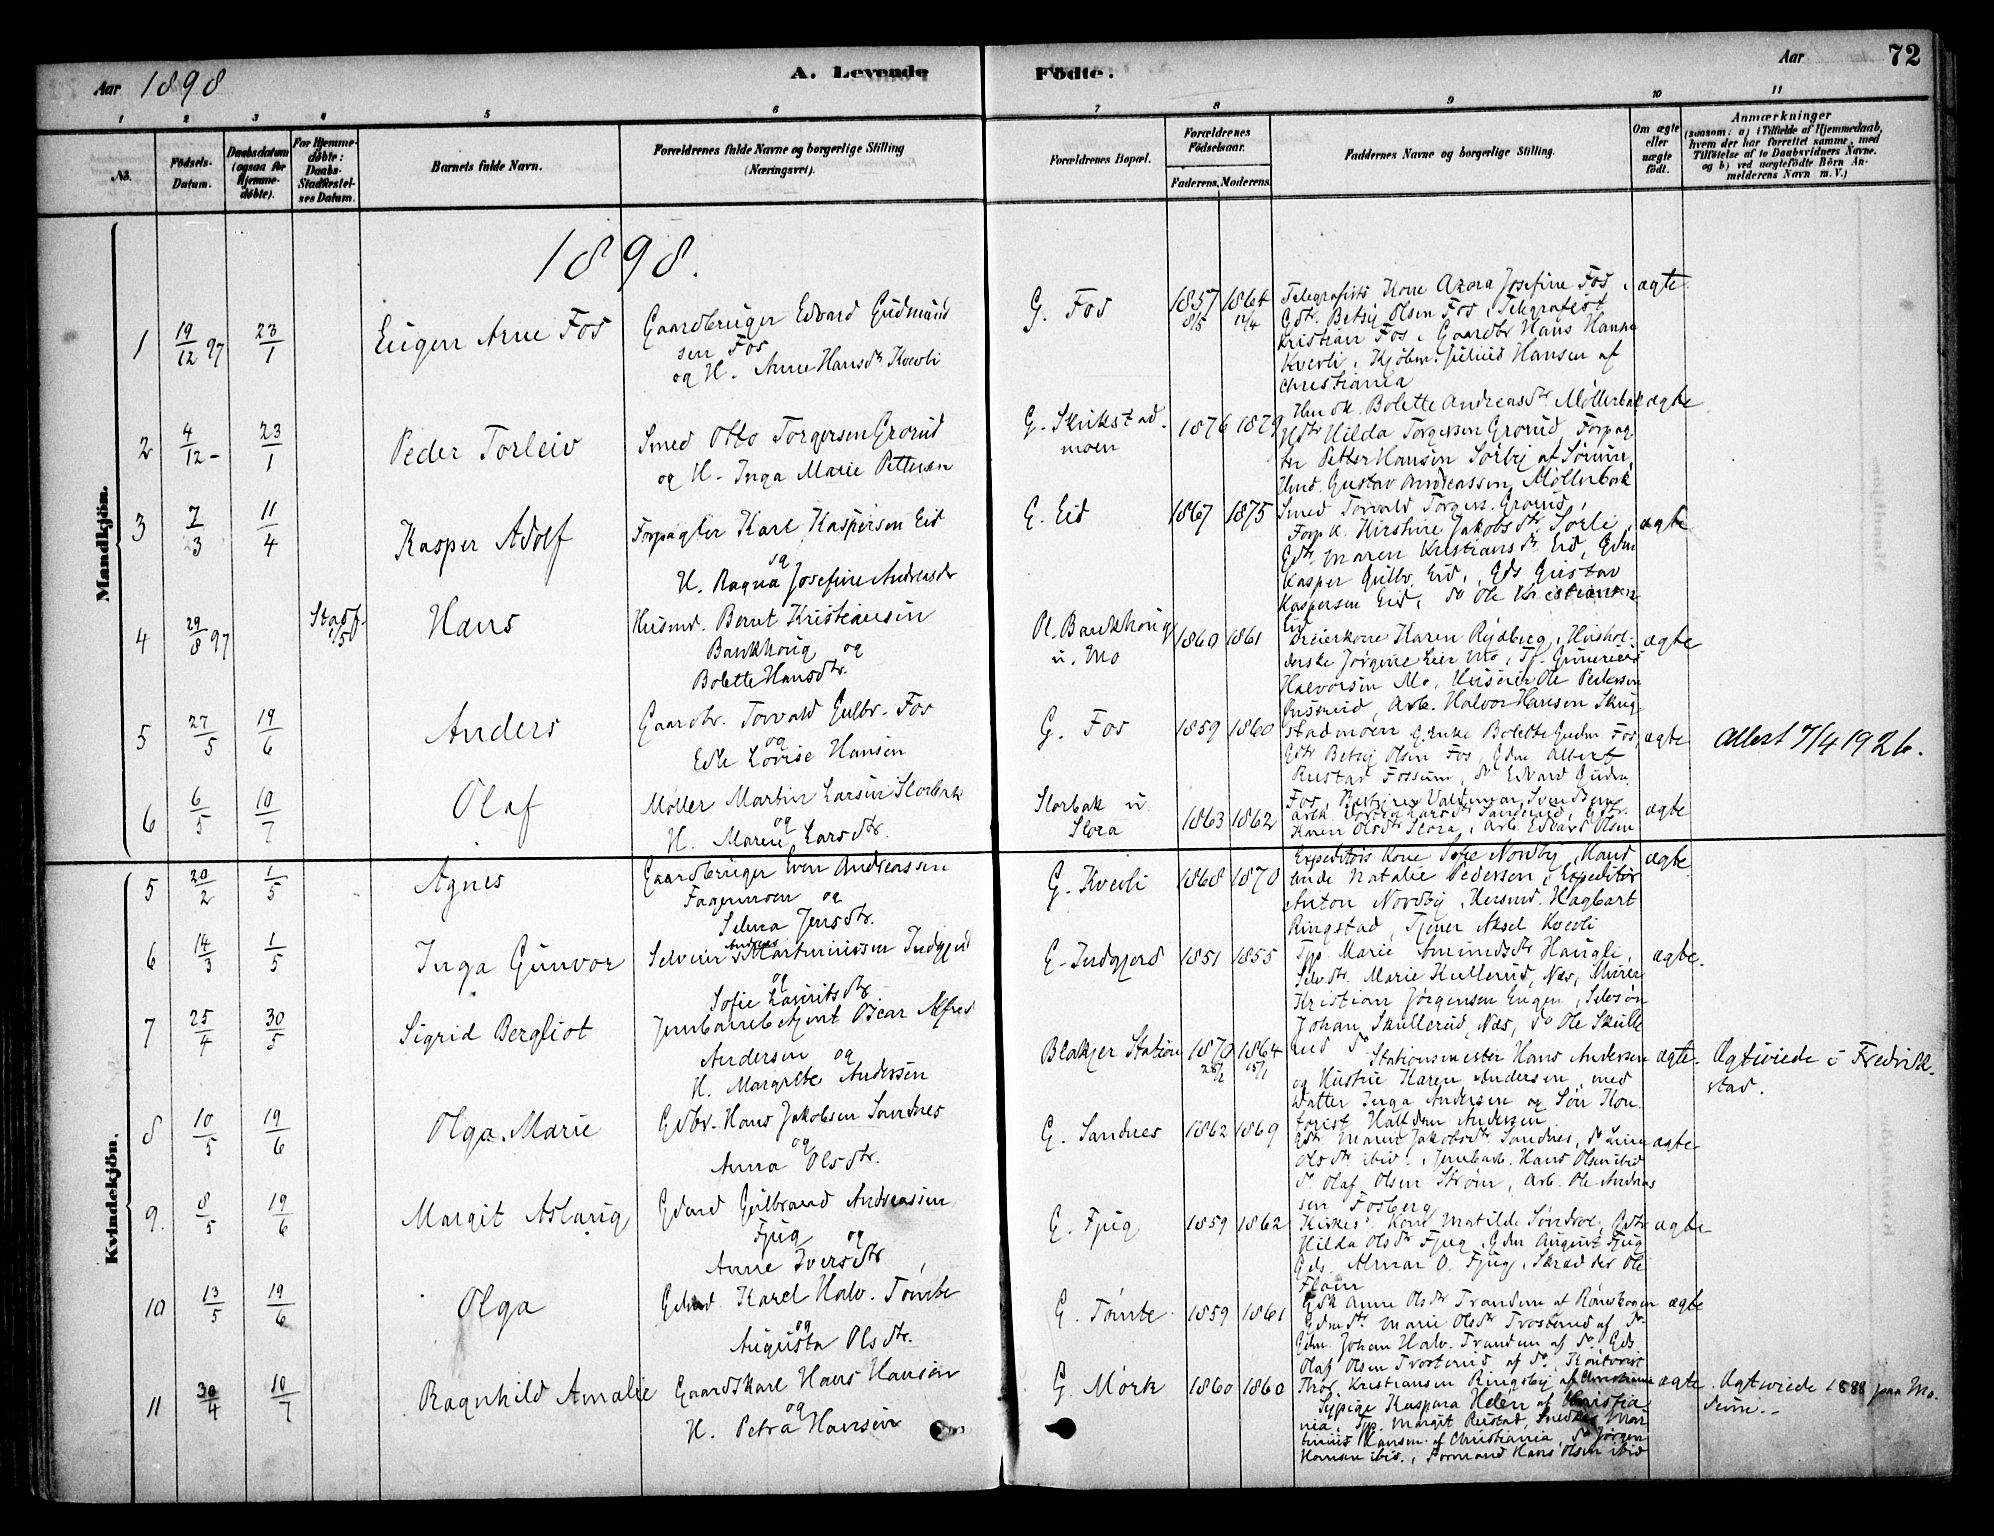 Aar 1898
A. Levende
Födte.
Aar
72
1 2 3 4 5 6 7 8 9 10 11
No.
Födsels-Datum.
Daabsdatum (ogsaa for Hjemmedöbte).
For Hjemmedöbte: Daabs-Stadfæstelses Datum.
Barnets fulde Navn.
Forældrenes fulde Navne og borgerlige Stilling (Næringsvei).
Forældrenes Bopæl.
Forældrenes Födselsaar.
Faderens. Moderens.
Faddernes Navne og borgerlige Stilling.
Om ægte eller uægte födt.
Anmærkninger
(saasom: a) i Tilfælde af Hjemmedaab, hvem der har forrettet samme, med Tilföielse af to Daabsvidners Navne, og b) ved uægtefödte Börn Anmelderens Navn m. V.)
Mandkjön.
1898.
1 19/12 97 23/1 Eugen Arne Fos
Gaardbruger Edvard Gudmund
sen Fos
og H. Anne Hansdr Kvevli
G. Fos 1857 8/5 1864 12/4
Telegrafists Kone Azora Josefine Fos,
Gdr. Betsy Olsen Fos, Telegrafist
Kristian Fos, Gaardbr Hans Hansen
Kvevli, Kjøbm. Julius Hansen af
Christiania
ægte
2 4/12 - 23/1 Peder Torleiv
Smed Otto Torgersen Grorud
og H. Inga Marie Pettersen
G. Skrikstad
moen
1876 1879
Bolette Andreasdr Møllerbak
Hilda Torgersen Grorud, Forpag
ter Petter Hansen Sørby af Sørum,
Gustav Andreassen Møllerbak
ægte
3 7/3 11/4 Kasper Adolf
Forpagter Karl Kaspersen Eid
og
H. Ragna Josefine Andreasdr
G. Eid 1867 1875
Smed Torvald Torgers. Grorud,
Forp K. Kirstine Jakobsdr Sorli,
Gdr. Maren Kristiansdr Eid, Gdm
Kasper Gulbr. Eid, Gds Gustav
Kaspersen Eid, do Ole Kristiansen
Eid
ægte
4 29/8 97 Stadf. 1/5 Hans
Husmd. Bernt Kristiansen
Bankhoug og
Bolette Hansdtr.
Pl. Bankhoug
u. Mo
1860 1861
Dreierkone Karen Rydberg, Hushol-
derske Jørgine Lier Mo, Tj. Gunerius
Halvorsen Mo, Ole Pedersen
Arb. Halvor Hansen Skrig-
stadmoen
ægte
5 27/5 19/6 Anders
Gaardbr. Torvald Gulbr. Fos
og
Edle Lovise Hansen
G. Fos 1859 1860
G. Enke Bolette Gudm Fos,
Gdr Betsy Olsen Fos, Gdm Albert
Rustad Fossum, do Edvard Gudm.
Fos,
ægte
Attest 7/4 1926.
6 6/5 10/7 Olaf
Møller Martin Larsen Slorbak
og
H. Maren Larsdtr.
Slorbak u.
Slora
1863 1862
Karen Olsdtr Slora, Arb. Edvard Olsen
ægte
Kvindekjön.
5 20/2 1/5 Agnes
Gaardbruger Even Andreassen
Fagermoen og
Selma Jensdtr.
G. Kvevli 1868 1870
Expeditørs Kone Sofie Nordby, Hand
lende Natalie Pedersen, Expeditør
Anton Nordby, Husmd. Hagbart
Ringstad, Tjener Aksel Kvevli
ægte
6 14/3 1/5 Inga Gunvor
Selveier Andreas Martiniussen Indgjerd
og
Sofie Lauritsdtr
G. Indgjerd 1851 1855
Tjp. Marie Amundsdr Haugli,
Selvdtr. Marie Kullerud, Næs, Murer
Kristian Jørgensen Engen, Selvsøn
Johan Skullerud, Næs, do Ole Skulle
rud do
ægte.
7 25/4 30/5 Sigrid Bergliot
Jernbanebetjent Oscar Alfred
Andersen og
H. Margrethe Andersen
Blakjer Station 1870 1864
Stationsmester Hans Andersen
og Hustru Karen Andersen, med
Datter Inga Andersen og Søn Kon
torist Halfdan Andersen
ægte.
Ægtviede i Fredrik-
stad.
8 10/5 19/6 Olga Marie
Gdbr. Hans Jakobsen Sandnes
og
Anna Olsdtr.
G. Sandnes 1862 1869
Gdr. Maren Jakobsdr Sandnes, do Lina
Olsdtr. ibid., Jernbarb. Hans Olsen ibid
do Olaf Olsen Strøm, Arb. Ole Andreas
sen Fosberg
ægte
9. 8/5 19/6 Margit Aslaug
Gdmd Gulbrand Andreassen
Fjug og
Anne Iversdtr
G. Fjug 1859 1862
Kirkes. Kone Matilde Søndvol, Gdtr
Hilda Olsdr Fjug, Gdm August Fjug
Gds. Almar O. Fjug, Skrædder Ole
Flaen
ægte
10 13/5 19/6 Olga
Gdmd Karel Halv. Tømte
og
Augusta Olsdtr.
G. Tømte 1859 1861
Gdk Anne Olsdr Trandem af Rømskogen
Gdmdr. Marie Olsdr Trosterud af do
Gdm. Johan Halv. Trandem af do Gds
Olaf Olsen Trosterud af do, Kontorist
Thor. Kristiansen Ringsby af Christiania
ægte
11 30/4 10/7 Ragnhild Amalie
Gaardskarl Hans Hansen
og
H. Petra Hansen
G. Mork 1860 1860
Sypige Kaspara Helén af Christia
nia, Tjp. Margit Rustad, Snedker Mar
tinius Hansen af Christiania, do Jørgen
Hansen ibid., Formand Hans Olsen ibid
ægte
Ægtviede 1888 paa Mo-
dum.